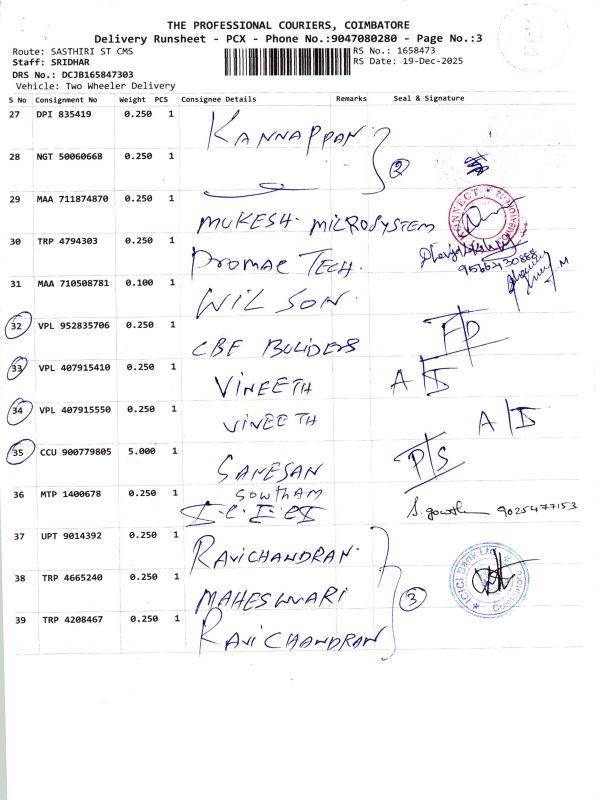 THE PROFESSIONAL COURIERS, COIMBATORE
Delivery Runsheet - PCX - Phone No.:9047080280 - Page No.:3
Route: SASTHIRI ST CMS RS No.: 1658473
Staff: SRIDHAR RS Date: 19-Dec-2025
DRS No.: DCJB165847303
Vehicle: Two Wheeler Delivery
S No Consignment No Weight PCS Consignee Details Remarks Seal & Signature
27 DPI 835419 0.250 1 KANNAPPAN
28 NGT 50060668 0.250 1 2
29 MAA 711874870 0.250 1 MUKESH. MICROSYSTEM CONNECT
30 TRP 4794303 0.250 1 PROMAC TECH.
31 MAA 710508781 0.100 1 WILSON.
32 VPL 952835706 0.250 1 CBF BULIDERS F/D
33 VPL 407915410 0.250 1 VINEETH A/D
34 VPL 407915550 0.250 1 VINEETH A/D
35 CCU 900779805 5.000 1 SANESAN P/S
36 MTP 1400678 0.250 1 GOWTHAM
9025477153
37 UPT 9014392 0.250 1 RAVICHANDRAN.
38 TRP 4665240 0.250 1 MAHESWARI 3 ICICI Bank Ltd Coimbatore
39 TRP 4208467 0.250 1 RAVICHANDRAN